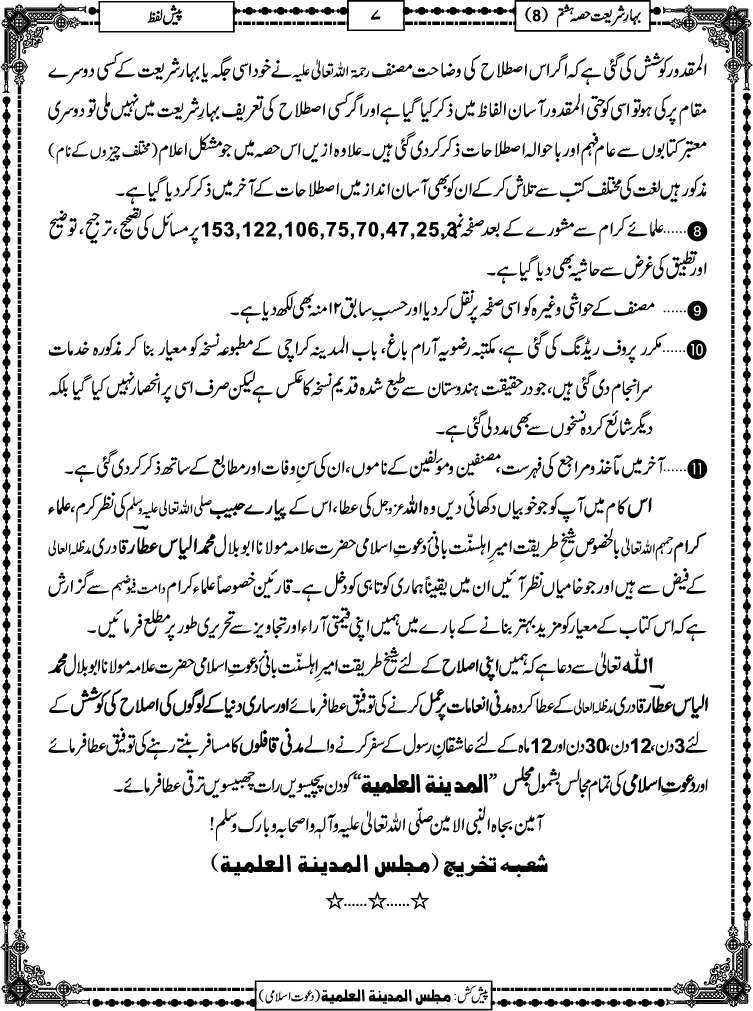 بہارِ شریعت حصہ ہشتم (8)
۷
پیش لفظ
المقدور کوشش کی گئی ہے کہ اگر اس اصطلاح کی وضاحت مصنف رحمۃ اللہ تعالیٰ علیہ نے خود اسی جگہ یا بہارِ شریعت کے کسی دوسرے
مقام پر کی ہو تو اسی کو حتی المقدور آسان الفاظ میں ذکر کیا گیا ہے اور اگر کسی اصطلاح کی تعریف بہارِ شریعت میں نہیں ملی تو دوسری
معتبر کتابوں سے عام فہم اور باحوالہ اصطلاحات ذکر کر دی گئی ہیں۔ علاوہ ازیں اس حصہ میں جو مشکل اعلام (مختلف چیزوں کے نام)
مذکور ہیں لغت کی مختلف کتب سے تلاش کر کے ان کو بھی آسان انداز میں اصطلاحات کے آخر میں ذکر کر دیا گیا ہے۔
8......علمائے کرام سے مشورے کے بعد صفحہ نمبر 2,25,47,70,75,106,122,153 پر مسائل کی تصحیح، ترجیح، توضیح
اور تطبیق کی غرض سے حاشیہ بھی دیا گیا ہے۔
9...... مصنف کے حواشی وغیرہ کو اسی صفحہ پر نقل کر دیا اور حسبِ سابق ۱۲ منہ بھی لکھ دیا ہے۔
10......مکرر پروف ریڈنگ کی گئی ہے، مکتبہ رضویہ آرام باغ، باب المدینہ کراچی کے مطبوعہ نسخہ کو معیار بنا کر مذکورہ خدمات
سرانجام دی گئی ہیں، جو در حقیقت ہندوستان سے طبع شدہ قدیم نسخہ کا عکس ہے لیکن صرف اسی پر انحصار نہیں کیا گیا بلکہ
دیگر شائع کردہ نسخوں سے بھی مدد لی گئی ہے۔
11......آخر میں مآخذ و مراجع کی فہرست، مصنفین و مؤلفین کے ناموں، ان کی سنِ وفات اور مطابع کے ساتھ ذکر کر دی گئی ہے۔
اس کام میں آپ کو جو خوبیاں دکھائی دیں وہ اللہ عزوجل کی عطا، اس کے پیارے حبیب صلی اللہ تعالیٰ علیہ وسلم کی نظرِ کرم، علماء
کرام رحمہم اللہ تعالیٰ بالخصوص شیخِ طریقت امیرِ اہلسنّت بانیٔ دعوتِ اسلامی حضرت علامہ مولانا ابو بلال محمد الیاس عطار قادری مدظلہ العالی
کے فیض سے ہیں اور جو خامیاں نظر آئیں ان میں یقیناً ہماری کوتاہی کو دخل ہے۔ قارئین خصوصاً علماء کرام دامت فیوضہم سے گزارش
ہے کہ اس کتاب کے معیار کو مزید بہتر بنانے کے بارے میں ہمیں اپنی قیمتی آراء اور تجاویز سے تحریری طور پر مطلع فرمائیں۔
اللہ تعالیٰ سے دعا ہے کہ ہمیں اپنی اصلاح کے لئے شیخِ طریقت امیرِ اہلسنّت بانیٔ دعوتِ اسلامی حضرت علامہ مولانا ابو بلال محمد
الیاس عطار قادری مدظلہ العالی کے عطا کردہ مدنی انعامات پر عمل کرنے کی توفیق عطا فرمائے اور ساری دنیا کے لوگوں کی اصلاح کی کوشش کے
لئے 3 دن، 12 دن، 30 دن اور 12 ماہ کے لئے عاشقانِ رسول کے سفر کرنے والے مدنی قافلوں کا مسافر بنتے رہنے کی توفیق عطا فرمائے
اور دعوتِ اسلامی کی تمام مجالس بشمول مجلس ”المدینۃ العلمیۃ“ کو دن پچیسویں رات چھبیسویں ترقی عطا فرمائے۔
آمین بجاہ النبی الامین صلّی اللہ تعالیٰ علیہ وآلہٖ واصحابہٖ وبارک وسلم!
شعبہ تخریج (مجلس المدینۃ العلمیۃ)
☆......☆......☆
پیش کش: مجلس المدینۃ العلمیۃ (دعوت اسلامی)